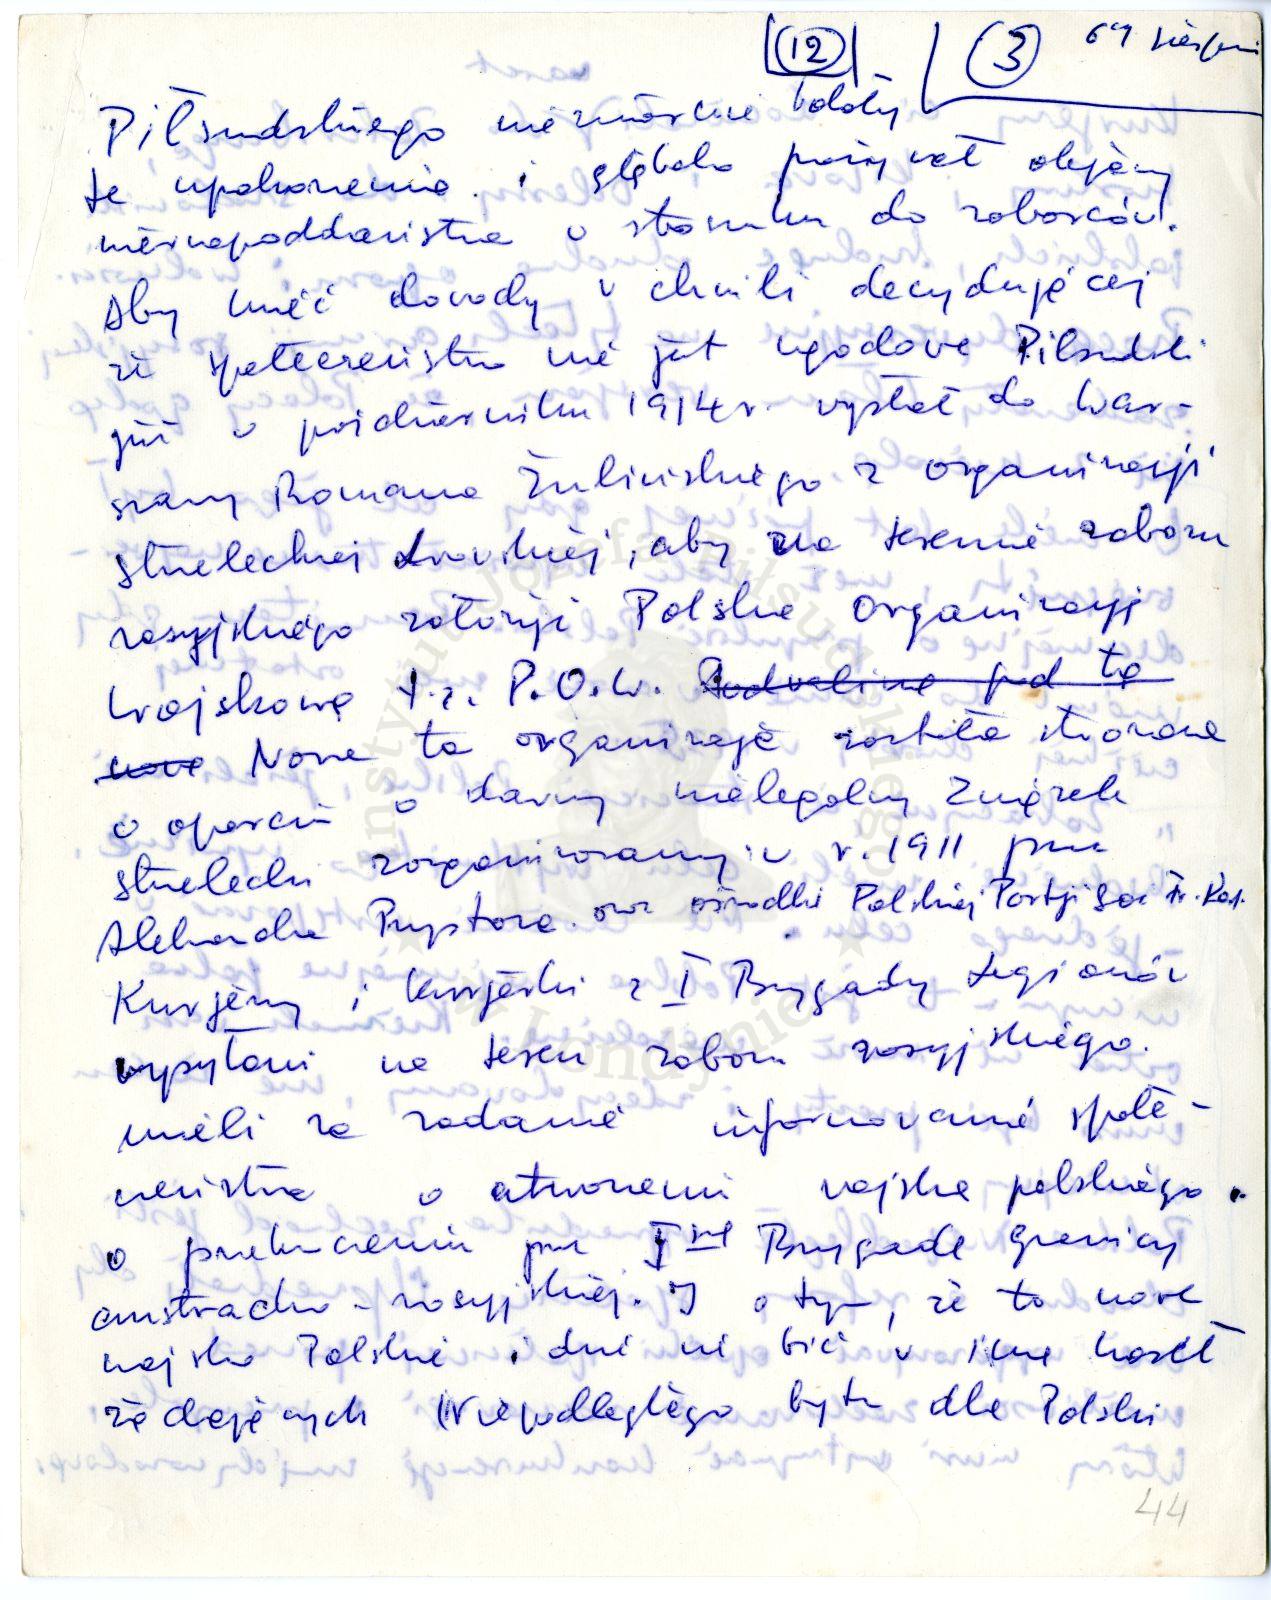 12 3 64 sierpień
Piłsudskiego niezmiernie bolały
te upokorzenia i głęboko przeżywał objawy
wiernopoddaństwa w stosunku do zaborców.
Aby mieć dowody w chwili decydującej
że społeczeństwo nie jest ugodowe Piłsudski
już w październiku 1914 r. wysłał do War-
szawy Romana Żulińskiego z organizacji
strzeleckiej lwowskiej, aby na terenie zaboru
rosyjskiego założyć Polską Organizację
Wojskową t.z. P.O.W. Podwaliną pod tę
nową Nowa ta organizacja została stworzona
w oparciu o dawny nielegalny Związek
strzelecki zorganizowany w r. 1911 przez
Aleksandra Prystora. oraz ośrodki Polskiej Partji Soc Fr. Rew.
Kurjerzy i kurjerki z I Brygady Legionów
wysyłani na teren zaboru rosyjskiego.
mieli za zadanie informowanie społe-
czeństwa o stworzeniu wojska polskiego.
o przekroczeniu przez I-szą Brygadę granicy
austracko-rosyjskiej. I o tym, że to nowe
wojsko Polskie idzie się bić w imię haseł
żądających Niepodległego bytu dla Polski
44
Instytut Józefa Piłsudskiego
w Londynie